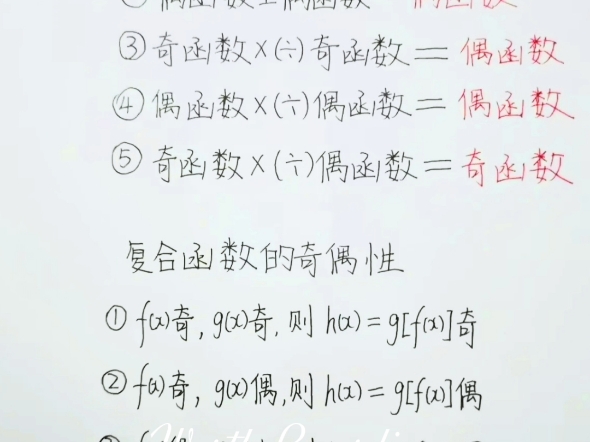 ③ 奇函数×(÷)奇函数＝偶函数
④ 偶函数×(÷)偶函数＝偶函数
⑤ 奇函数×(÷)偶函数＝奇函数
复合函数的奇偶性
① f(x)奇,g(x)奇,则h(x)=g[f(x)]奇
② f(x)奇,g(x)偶,则h(x)=g[f(x)]偶